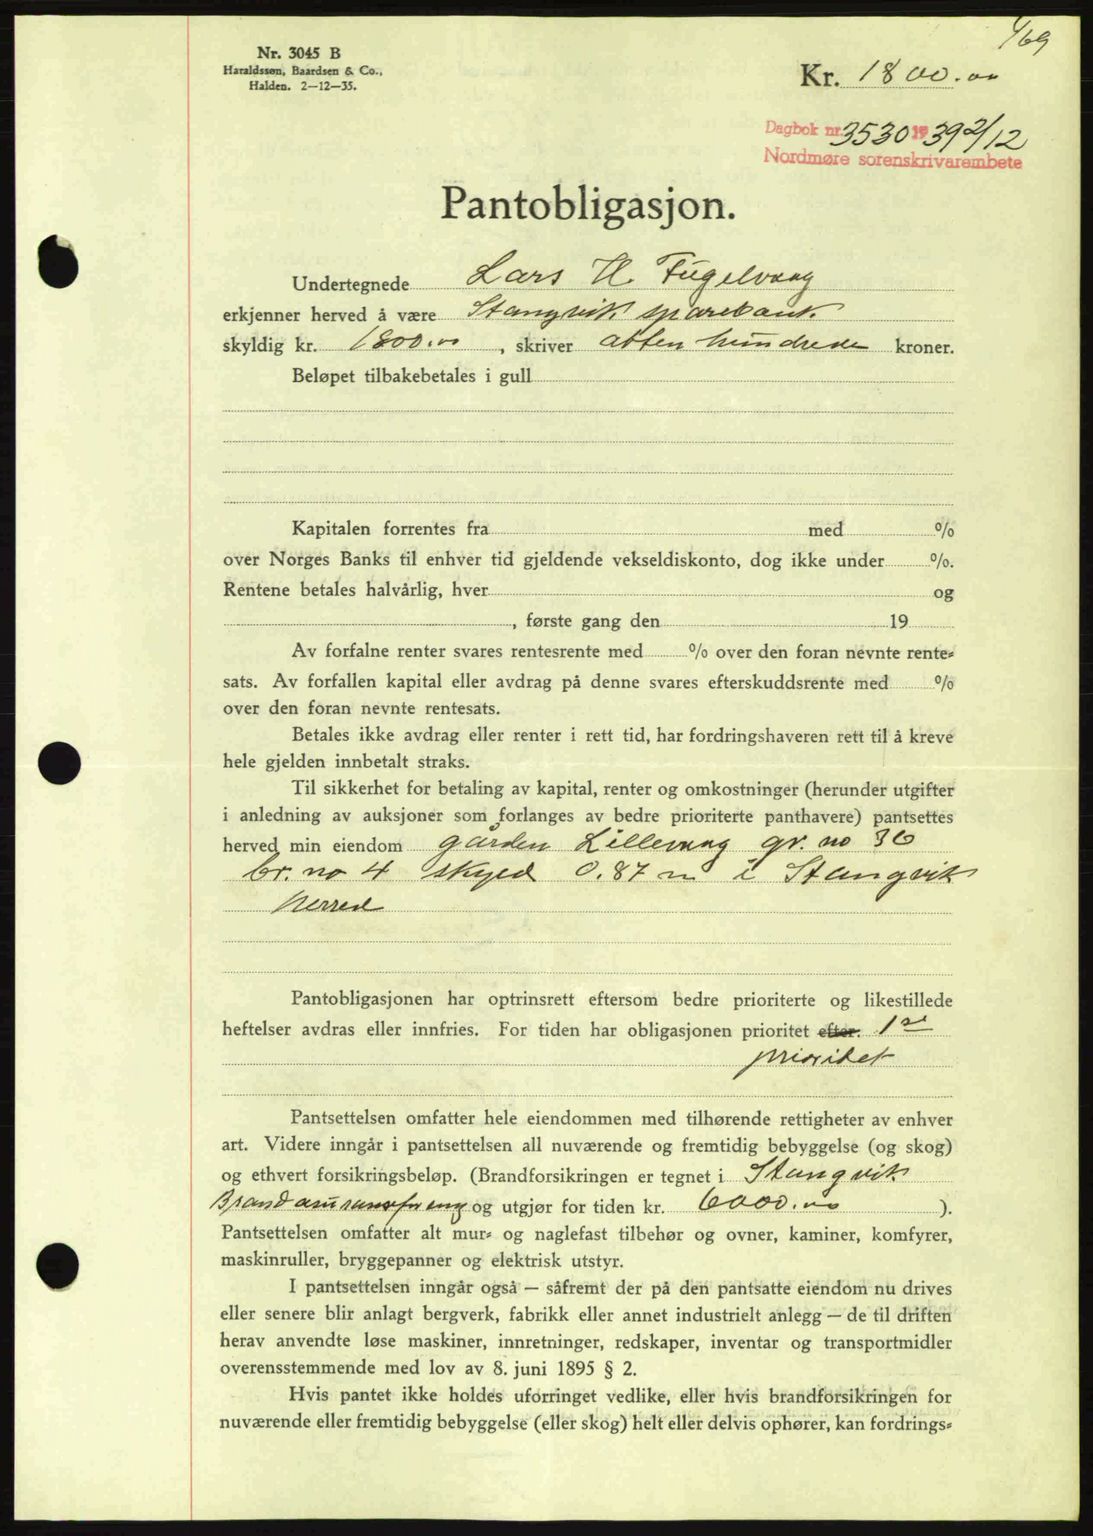 469
Nr. 3045 B
Haraldssøn, Baardsen & Co.,
Halden. 2—12—35.
Kr. 1800.00
Dagbok nr. 3530 1939 2/12
Nordmøre sorenskrivarembete
Pantobligasjon.
Undertegnede Lars H. Fugelvaag
erkjenner herved å være Stangvik sparebank
skyldig kr. 1800.00, skriver atten hundrede kroner.
Beløpet tilbakebetales i gull
Kapitalen forrentes fra med %
over Norges Banks til enhver tid gjeldende vekseldiskonto, dog ikke under %.
Rentene betales halvårlig, hver og
, første gang den 19
Av forfalne renter svares rentesrente med % over den foran nevnte rente-
sats. Av forfallen kapital eller avdrag på denne svares efterskuddsrente med %
over den foran nevnte rentesats.
Betales ikke avdrag eller renter i rett tid, har fordringshaveren rett til å kreve
hele gjelden innbetalt straks.
Til sikkerhet for betaling av kapital, renter og omkostninger (herunder utgifter
i anledning av auksjoner som forlanges av bedre prioriterte panthavere) pantsettes
herved min eiendom gården Lillevaag gr. no 36
br. no 4 skyld 0.87 m i Stangvik
herred
Pantobligasjonen har optrinsrett eftersom bedre prioriterte og likestillede
heftelser avdras eller innfries. For tiden har obligasjonen prioritet efter: 1ste
prioritet
Pantsettelsen omfatter hele eiendommen med tilhørende rettigheter av enhver
art. Videre inngår i pantsettelsen all nuværende og fremtidig bebyggelse (og skog)
og ethvert forsikringsbeløp. (Brandforsikringen er tegnet i Stangvik
Brandassuransefreng og utgjør for tiden kr. 6000.00 ).
Pantsettelsen omfatter alt mur- og naglefast tilbehør og ovner, kaminer, komfyrer,
maskinruller, bryggepanner og elektrisk utstyr.
I pantsettelsen inngår også — såfremt der på den pantsatte eiendom nu drives
eller senere blir anlagt bergverk, fabrikk eller annet industrielt anlegg — de til driften
herav anvendte løse maskiner, innretninger, redskaper, inventar og transportmidler
overensstemmende med lov av 8. juni 1895 § 2.
Hvis pantet ikke holdes uforringet vedlike, eller hvis brandforsikringen for
nuværende eller fremtidig bebyggelse (eller skog) helt eller delvis ophører, kan fordrings-